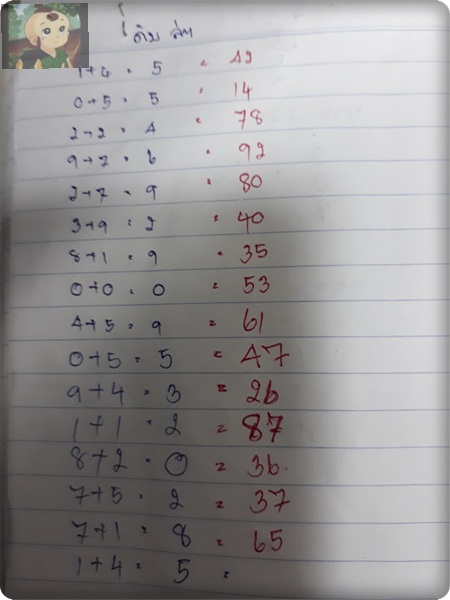 ดิบ ล่าง
1+4 = 5 = 42
0+5 = 5 = 14
2+2 = 4 = 78
9+7 = 6 = 92
2+7 = 9 = 80
3+9 = 2 = 40
8+1 = 9 = 35
0+0 = 0 = 53
4+5 = 9 = 61
0+5 = 5 = 47
9+4 = 3 = 26
1+1 = 2 = 87
8+2 = 0 = 36
7+5 = 2 = 37
7+1 = 8 = 65
1+4 = 5 =